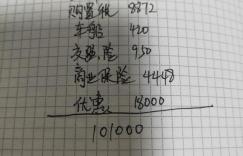 购置税 8872
车船 420
交强险 950
商业保险 4448
优惠 18000
101000